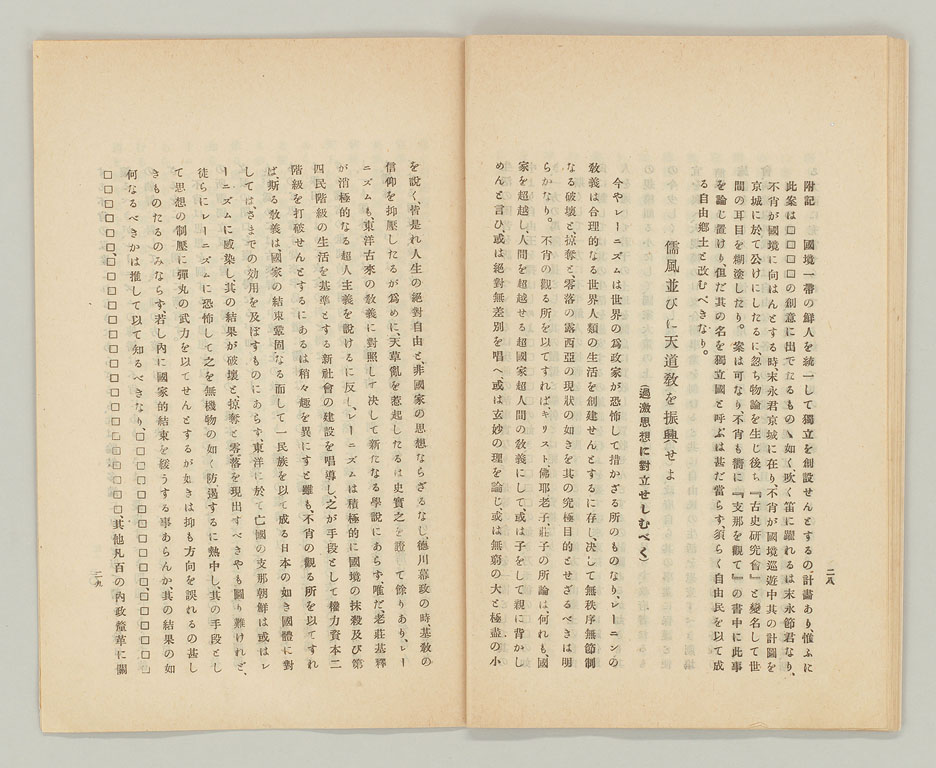 二八
附記　國境一帶の鮮人を統一して獨立を創設せんとするの、計畫あり惟ふに
此案は□□□□の創意に出でたるものゝ如く吹く笛に躍れるは末永節君なり、
不肖が國境に向はんとする時、末永君京城に在り、不肖が國境巡遊中其の計圖を
京城に於て公けにしたるに、忽ち物論を生じ後ち『古史研究會』と變名して世
間の耳目を糊塗したり。案は可なり不肖も嚮に『支那を觀て』の書中に此事
を論じ置けり、但だ其の名を獨立國と呼ぶは甚だ當らす、須らく自由民を以て成
る自由鄕土と改むべきなり。
儒風並びに天道敎を振興せよ
（過激思想に對立せしむべく）
今やレーニズムは世界の爲政家が恐怖して措かざる所のものなり、レーニンの
敎義は合理的なる世界人類の生活を創建せんとするに存し、决して無秩序無節制
なる破壞と、掠奪と、零落の露西亞の現狀の如きを其の究極目的とせざるべきは明
らかなり。不肖の觀る所を以てすれば、キリスト、佛耶老子、莊子の所論は、何れも、國
家を超越し、人間を超越せる超國家超人間の敎義にして、或は子をして親に背かし
めんと言ひ、或は絕對無差別を唱へ、或は玄妙の理を論じ、或は無窮の大と極盡の小
を說く、皆是れ人生の絕對自由と、非國家の思想ならざるなし、德川幕政の時、基敎の
信仰を抑壓したるが爲めに、天草亂を惹起したるは史實之を證　て餘りあり、レー
ニズムも、東洋古來の敎義に對照して决して新たなる學說にあらず、唯だ、老莊基釋
が消極的なる超人主義を說けるに反し、レーニズムは積極的に國境の抹殺及び第
四民階級の生活を基準とする新社會の建設を唱導し、之が手段として權力資本二
階級を打破せんとするにあるは稍々趣を異にすと雖も、不肖の觀る所を以てすれ
ば、斯る敎義は國家の結束鞏固なる面して一民族を以て成る日本の如き國體に對
しては、さまでの効用を及ぼすものにあらず、東洋に於て亡國の支那朝鮮は或はレ
ーニズムに感染し、其の結果が破壞と、掠奪と零落を現出すべきやも圖り難けれど、
徒らにレーニズムに恐怖して之を無機物の如く防遏するに熱中し、其の手段とし
て思想の制壓に彈丸の武力を以てせんとするが如きは抑も方向を誤れるの甚し
きものたるのみならず、若し內に國家的結束を緩うする事あらんか、其の結果の如
何なるべきかは推して以て知るべきなり、□□□□□□□□□□□□□□□
□□□□□□□□□□□□□□□□□□□□□□、其他凡百の內政釐革に關
二九